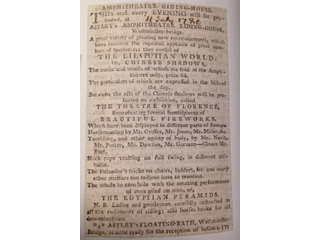 AMPHITHEATRE RIDING-HOUSE.
THIS and every EVENING will be pre-
sented, at 11 July 1786
ASTLEY'S AMPHITHEATRE RIDING-HOUSE,
Westminster-bridge,
A great variety of pleasing new entertainments, which
have received the repeated applause of great num-
bers of spectators; they consist of
THE LILIPUTIAN WORLD:
Or, CHINESE SHADOWS,
The music and words of which are sold at the Amphi-
theatre only, price 6d.
The particulars of which are expressed in the bills of
the day.
Between the acts of the Chinese shadows will be pre-
sented an exhibition, called
THE THEATRE OF FLORENCE,
Representing several frontispieces of
BEAUTIFUL FIREWORKS,
Which have been displayed in different parts of Europe.
Horsemanship by Mr. Griffin, Mr. Jones, Mr. Miller, &c.
Tumbling, and other agility of body, by Mr. Nevit,
Mr. Porter, Mr. Dawson, Mr. Garmon—Clown Mr.
Burt.
Slack rope vaulting on full swing, in different atti-
tudes.
The Polander's tricks on chairs, ladders, &c. and many
other matters too tedious here to mention.
The whole to conclude with the amazing performance
of men piled on men, or,
THE EGYPTIAN PYRAMIDS.
N. B. Ladies and gentlemen carefully instructed in
all the rudiments of riding; also horses broke for all
denominations.
ASTLEY'S FLOATING-BATH, Westminster-
Bridge, is now ready for the reception of bathers